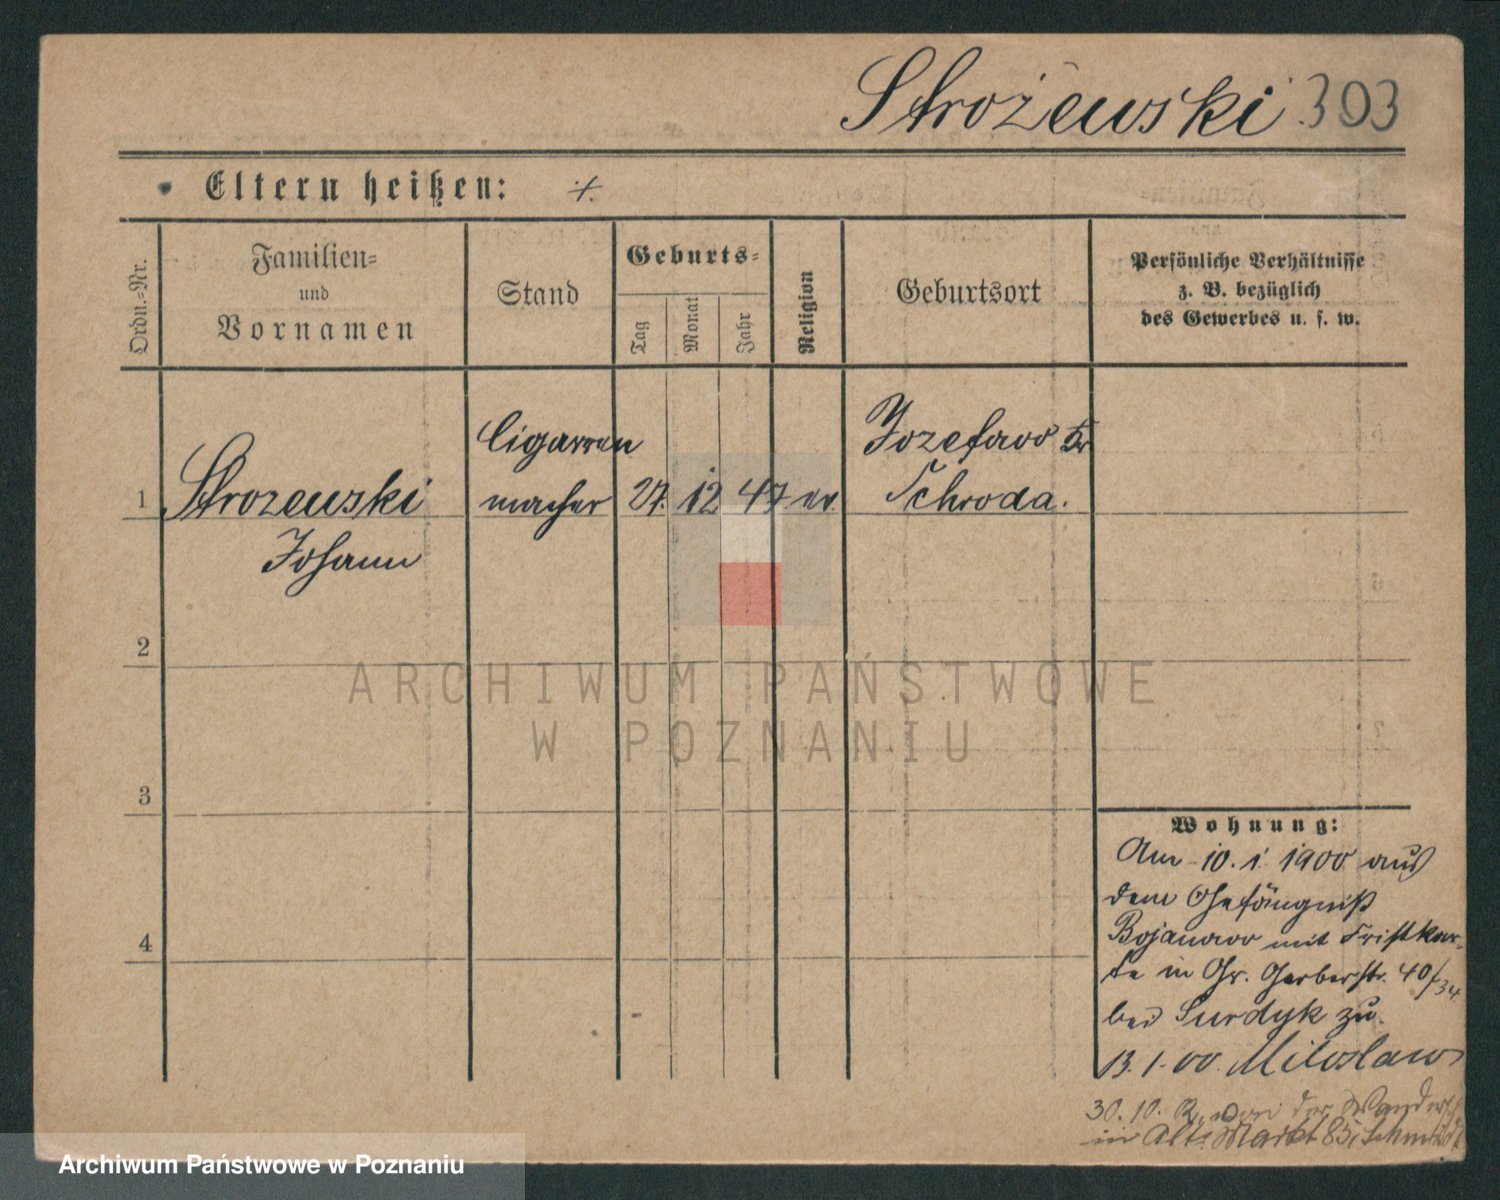 Strożewski 303
Eltern heißen: ./.
Ordn.-Nr.
Familien-
und
Vornamen
Stand
Geburts-
Tag
Monat
Jahr
Religion
Geburtsort
Persönliche Verhältnisse
z. B. bezüglich
des Gewerbes u. s. w.
Cigarren Jozefowo Kr
1 Strozewski macher 27. 12 47 ev. Schroda.
Johann
2
3
4
Wohnung:
Am 10. 1. 1900 aus
dem Gefängniß
Bojanowo mit Fristkar-
te in Gr. Gerberstr. 40/34
bei Surdyk zu.
13. 1. 00. Miloslaw
30. 10. von der Wandersch
in Alt. Markt 85,
ARCHIWUM PAŃSTWOWE
W POZNANIU
Archiwum Państwowe w Poznaniu